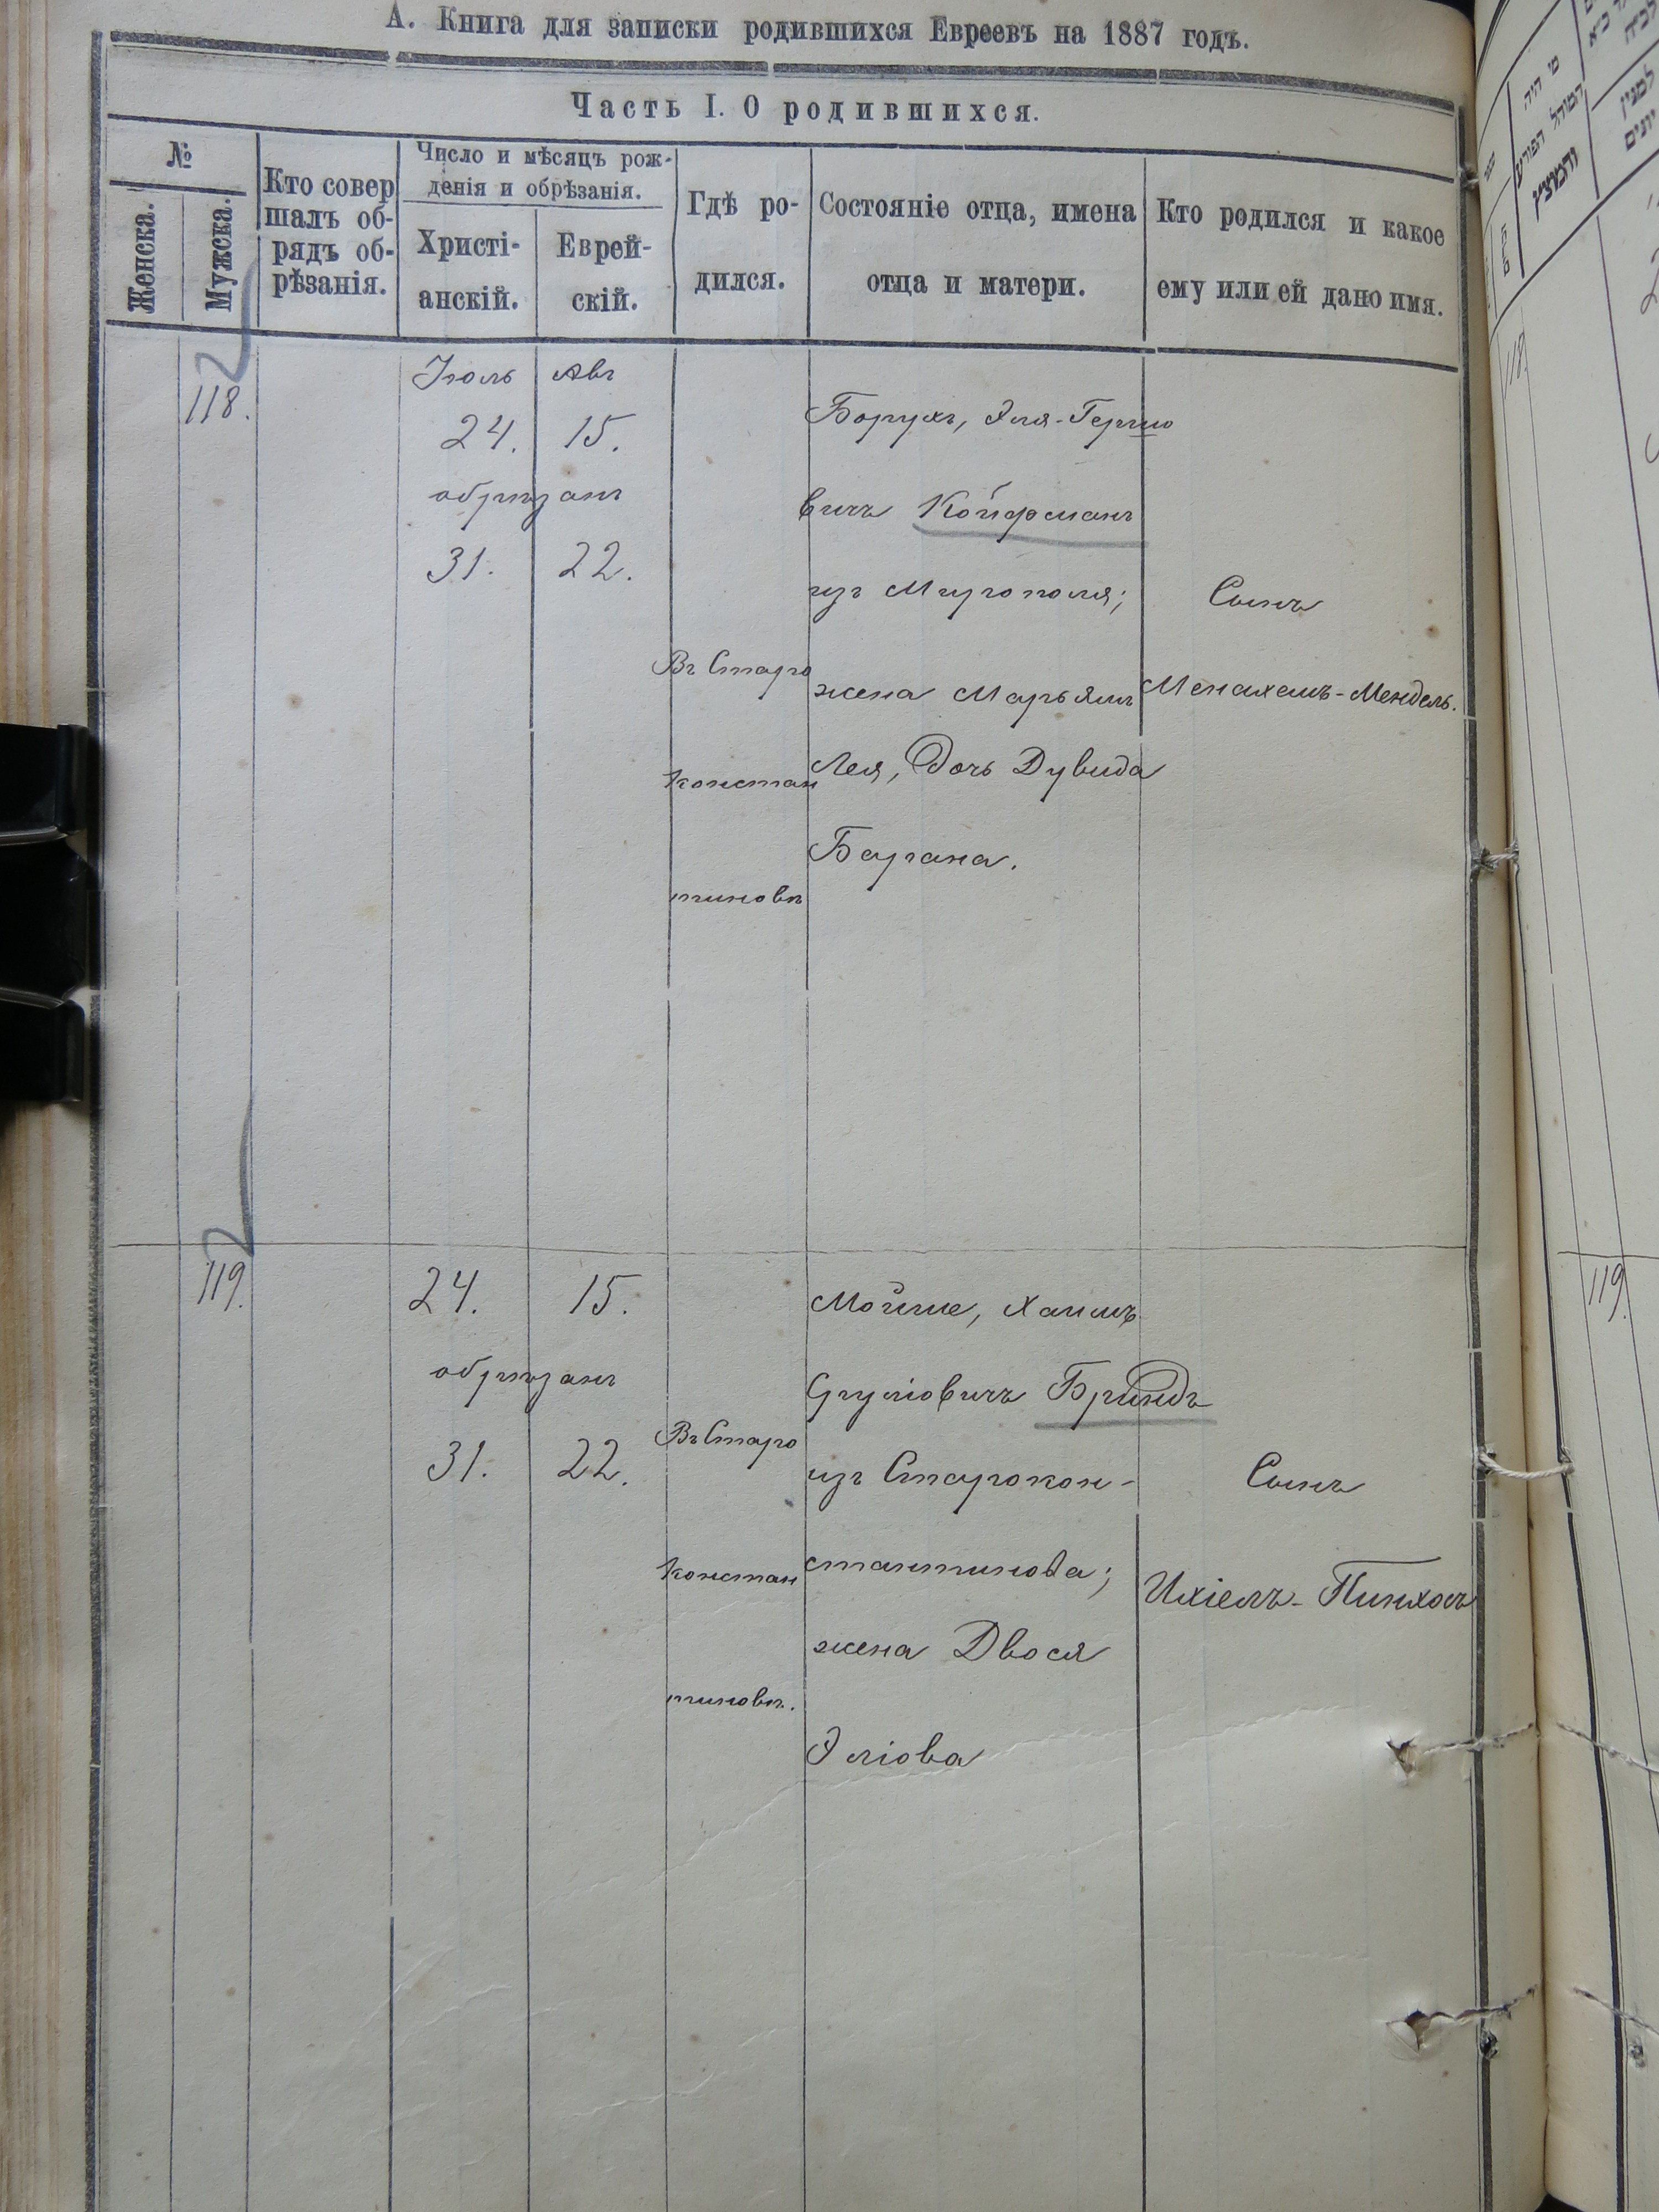 А. Книга для записки родившихся Евреевъ на 1887 годъ.
Часть I. О родившихся.
№
Женска.
Мужска.
Кто совер
шалъ об-
рядъ об-
рѣзанія.
Число и мѣсяцъ рож-
денія и обрѣзанія.
Христі-
анскій.
Еврей-
скій.
Гдѣ ро-
дился.
Состояніе отца, имена
отца и матери.
Кто родился и какое
ему или ей дано имя.
118.
Іюль
Авг
24.
15.
обрѣзанъ
31.
22.
Въ Старо
констан
тиновѣ
Борухъ, Эля-Гершо
вичъ Койфманъ
изъ Мирополя;
жена Марьямъ
Лея, дочь Дувида
Барана.
Сынъ
Менахемъ-Мендель.
119.
24.
15.
обрѣзанъ
31.
22.
Въ Старо
констан
тиновѣ.
Мойше, Хаимъ
Сруліовичъ Бриндъ
изъ Старокон-
стантинова;
жена Двося
Эліова
Сынъ
Ихіелъ-Пинхосъ
מי היה
המוהל
והמוצץ
למנין
יונים
118.
119.